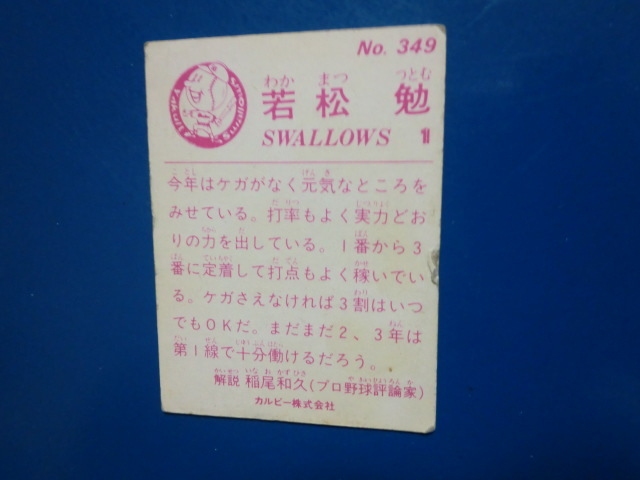 No. 349
わか まつ つとむ
若松 勉
SWALLOWS 1
今年はケガがなく元気なところを
みせている。打率もよく実力どお
りの力を出している。1番から3
番に定着して打点もよく稼いでい
る。ケガさえなければ3割はいつ
でもOKだ。まだまだ2、3年は
第1線で十分働けるだろう。
解説 稲尾和久(プロ野球評論家)
カルビー株式会社